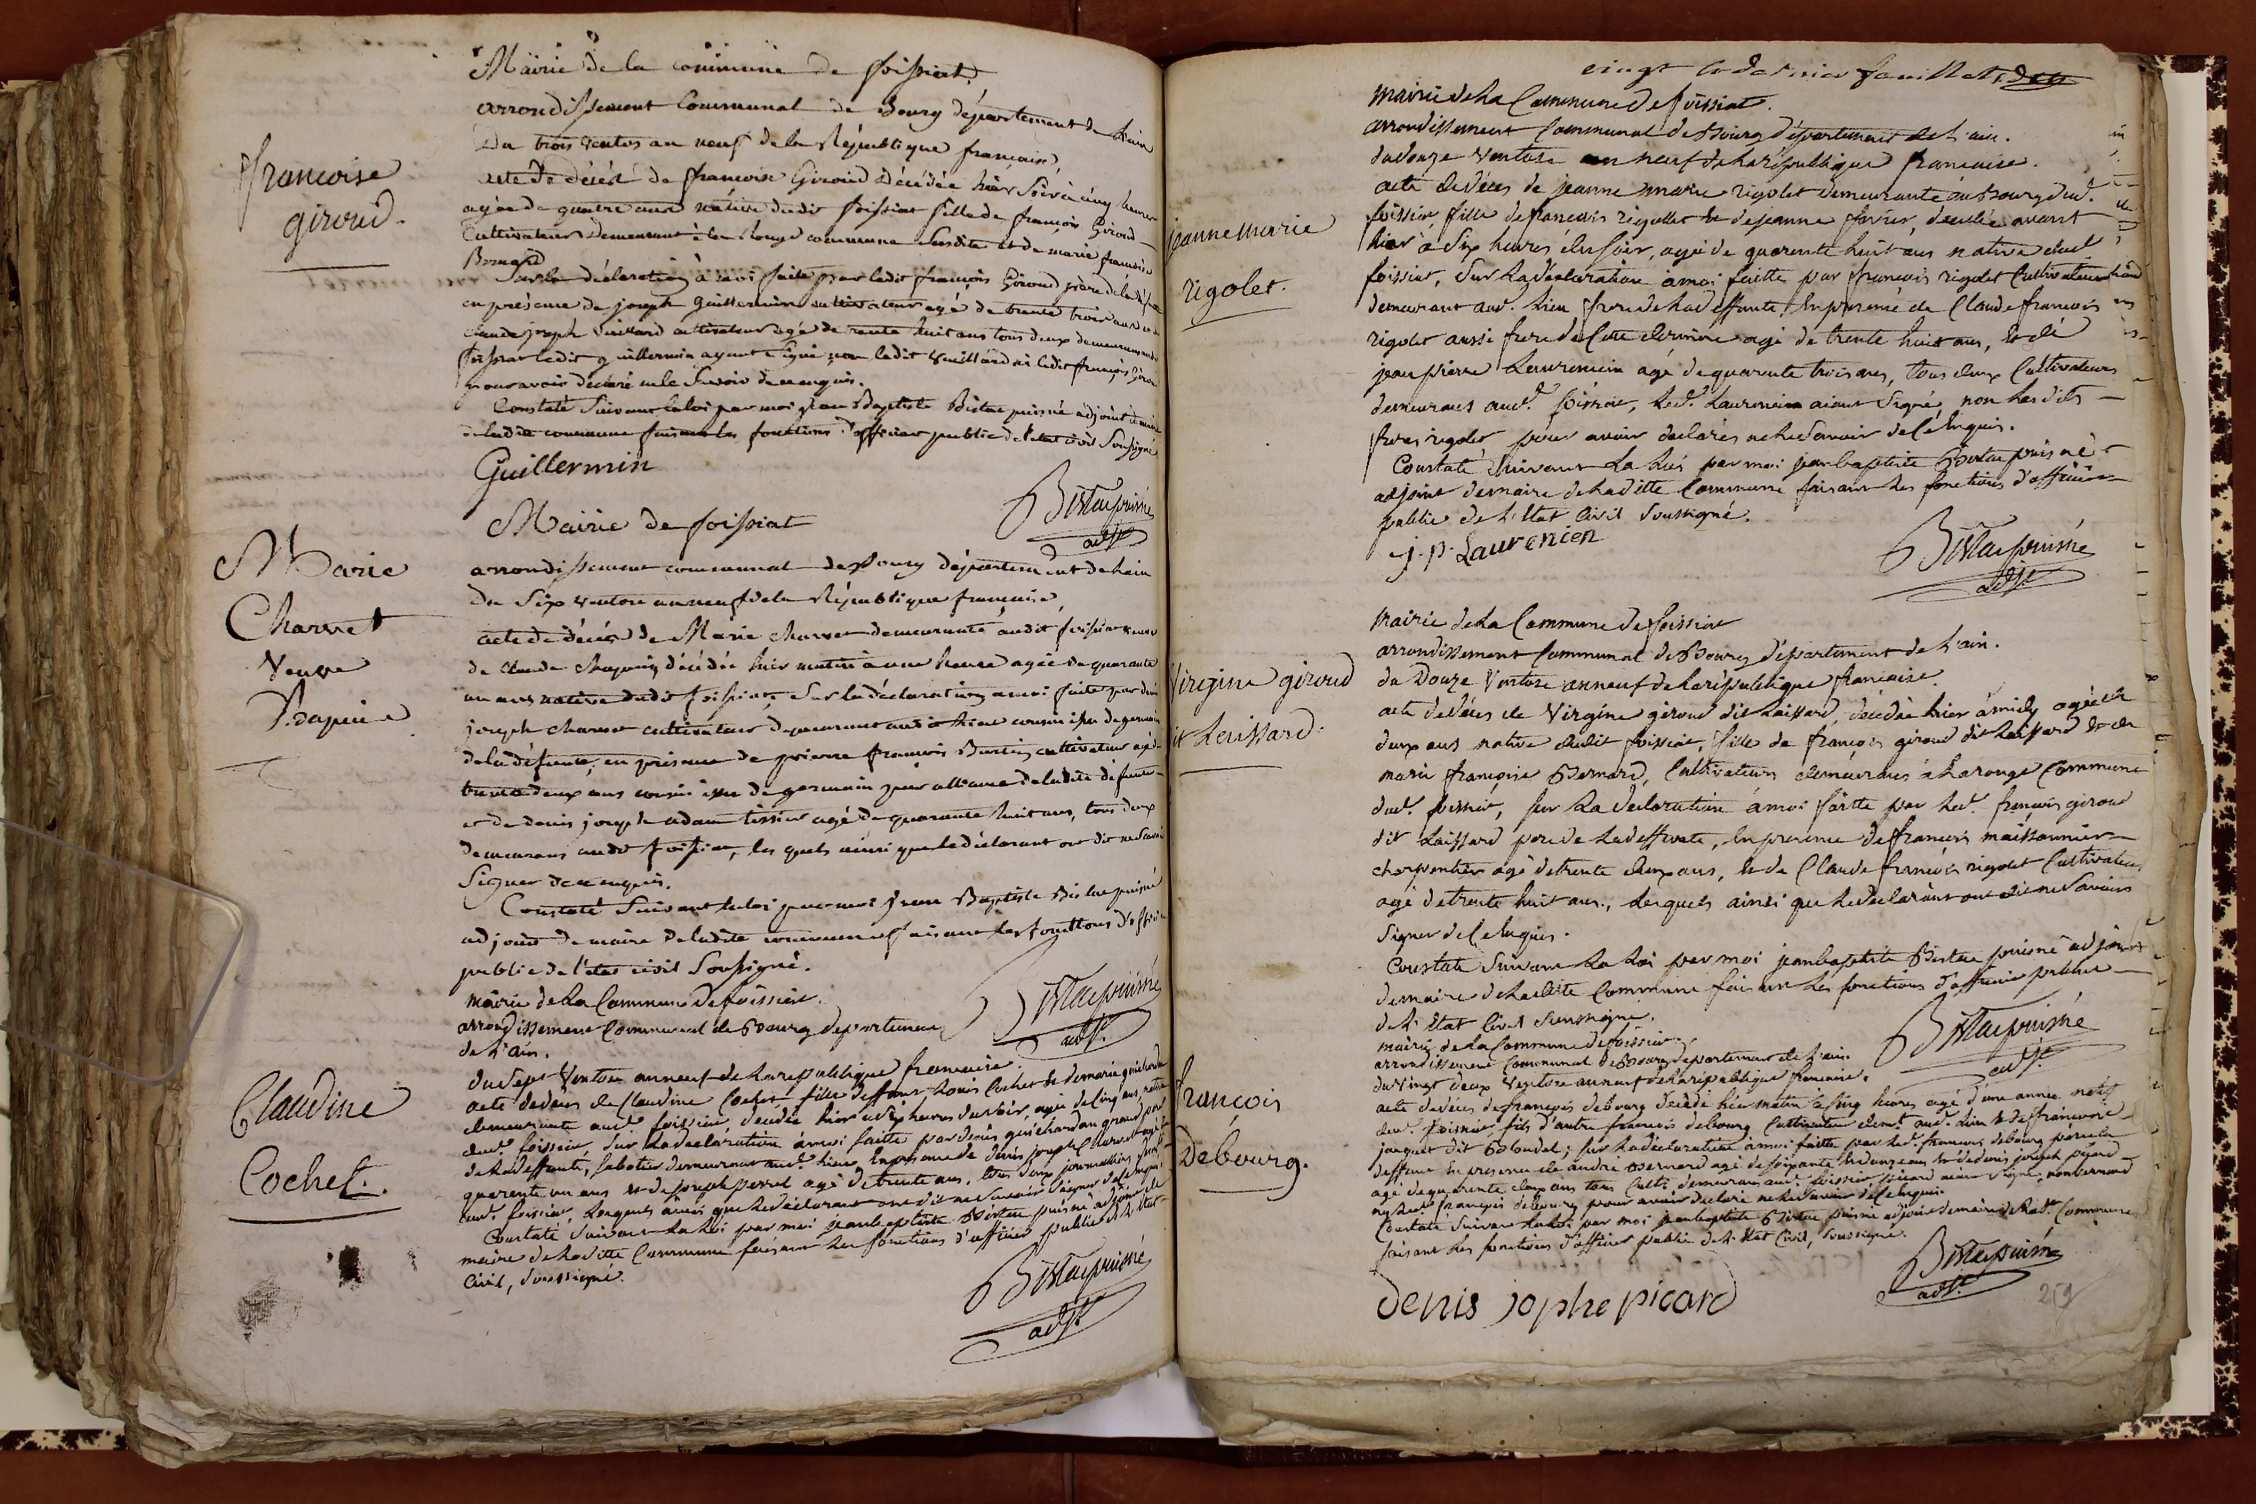 Mairie de la commune de foissiat,
arrondissement Communal de Bourg département de L'ain
Du trois ventos an neuf de la République francaise,
acte de décès de francoise Giroud décédée hier soir à cinq heures
agée de quatre ans native dudit foissiat fille de françois Giroud
Cultivateur demeurant à la Rouge commune susdite et de marie francoise
Bernard
Sur la déclaration à moi faite par ledit françois Giroud père de la défunte
en présence de joseph guillermin cultivateur agé de trente trois ans et de
claude joseph Vuillard cultivateur agé de trente huit ans tous deux demeurans audit
foissiat ledit guillermin ayant signé, non ledit Vuillard ni ledit françois Giroud
pour avoir déclaré ne le savoir de ce enquis.
Constaté Suivant la loi par moi jean Baptiste Bistac puisné adjoint de maire
de ladite commune faisant les fonctions d'officier public de l'état civil Soussigné
françoise
giroud.
Guillermin
Bistac puisné
adjt
Mairie de foissiat
arrondissement communal de Bourg département de L'ain
Du Six ventose an neuf de la République francaise,
acte de décès de Marie charvet demeurante audit foissiat veuve
de claude chapuis, décédée hier matin à une heure agée de quarante
un ans native dudit foissiat, Sur la déclaration à moi faite par denis
joseph charvet cultivateur demeurant audit Lieu cousin issu de germain
de la défunte, en présence de pierre françois Burtin cultivateur agé de
trente deux ans cousin issu de germain par alliance de ladite défunte
et de denis joseph adam tissier agé de quarante huit ans, tous deux
demeurans audit foissiat, les quels ainsi que le déclarant ont dit ne savoir
Signer de ce enquis.
Constaté Suivant la loi par moi Jean Baptiste Bistac puisné
adjoint de maire de ladite commune faisant les fonctions d'officier
public de l'état civil Soussigné.
Marie
Charvet
Veuve
Bistac puisné
adjt
mairie de La Commune de foissiat.
arrondissement Communal de Bourg département
de L'ain.
du Sept Ventose an neuf de La republique francaise.
acte de déces de Claudine Cochet fille de feu Louis Cochet et de marie guichardon
demeurante aud.t foissiat, decédée hier à six heures du soir, agée de cinq ans, native
dud.t foissiat, Sur La declaration à moi faitte par denis guichardon grand père
de La deffunte, Sabotier demeurant aud.t Lieu, En presence de denis joseph Charvet agé de
quarente un ans et de joseph perrel agé de trente ans, tous deux journalliers dem.t
aud.t foissiat, Lesquels ainsi que Le declarant ont dit ne savoir Signer de ce enquis.
Constaté Suivant La Loi par moi jeanbaptiste Bistac puisné adjoint de
maire de La ditte Commune faisant Les fonctions d'officier public de L'état
Civil, Soussigné.
Claudine
Cochet.
Bistac puisné
adjt
vingt le dernier feuillet
Mairie de La Commune de foissiat.
arrondissement Communal de Bourg département de L'ain.
du douze Ventose an neuf de La republique francaise.
acte de déces de jeanne marie rigolet demeurante au Bourg dud.t
foissiat fille de francois rigollet et de jeanne favier, decédée avant
hier à Six heures du soir, agé de quarente huit ans native dud.t
foissiat, Sur La déclaration à moi faitte par françois rigolet Cultivateur
demeurant aud.t Lieu, frere de La deffunte, En presence de Claude francois
rigolet aussi frere de Cette derniere agé de trente huit ans, et de
jean pierre Laurencin agé de quarante trois ans, tous deux Cultivateurs
demeurans aud.t foissiat, Led.t Laurencin aiant Signé, non Les dits
freres rigolet pour avoir declarés ne Le Savoir de Ce Enquis.
Constaté Suivant La Loi par moi jeanbaptiste Bistac puisné
adjoint demaire de La ditte Commune faisant Les fonctions d'officier
public de L'état Civil Soussigné.
jeanne marie
rigolet.
j. p. Laurencin
Bistac puisné
adjt
Mairie de La Commune de foissiat
arrondissement Communal de Bourg département de L'ain.
du Douze Ventose an neuf de La république francaise
acte de déces de Virgine giroud dit Laissard, decédée hier à midy agée de
deux ans native dudit foissiat, fille de françois giroud dit Laissard et de
marie françoise Bernard, Cultivateurs demeurans à La rouge Commune
dud.t foissiat, Sur La declaration à moi faitte par Led.t françois giroud
dit Laissard pere de La deffunte, En presence de françois maissonnier
charpentier agé de trente deux ans, et de Claude francois rigolet Cultivateur
agé de trente huit ans, Lesquels ainsi que Le declarant ont dit ne Savoir
Signer de Ce Enquis.
Constaté Suivant La Loi par moi jeanbaptiste Bistac puisné adjoint
demaire de La ditte Commune faisant Les fonctions d'officier public
de L'état Civil Soussigné.
Virgine giroud
dit Laissard.
Bistac puisné
adjt
mairie de La Commune de foissiat
arrondissement Communal de Bourg département de L'ain.
du Vingt deux Ventose an neuf de La république francaise.
acte de déces de françois debourg décédé hier matin à Cinq heures agé d'une année natif
dud.t foissiat fils d'autre francois debourg Cultivateur dem.t aud.t Lieu et de francoise
jacquet dit Blondel; Sur La déclaration à moi faitte par Led.t francois debourg père du
deffunt En presence de andré Bernard agé de soixante et douze ans et de denis joseph picard
agé de quarente deux ans tous Cultiv. demeurans aud.t foissiat picard aiant Signé, non bernard
ny Led.t françois debourg pour avoir declaré ne Le Savoir de Ce Enquis.
Constaté Suivant La Loi par moi jeanbaptiste Bistac puisné adjoint demaire de Lad.t Commune
faisant Les fonctions d'officier public de L'état Civil, Soussigné.
françois
Debourg.
Denis jophe picard
Bistac puisné
adjt